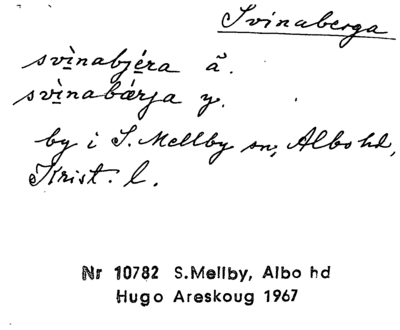 Svinaberga
svìnabjéra ä.
svìnabárja y.
by i S. Mellby sn, Albo hd,
Krist. l.
Nr 10782 S.Mellby, Albo hd
Hugo Areskoug 1967